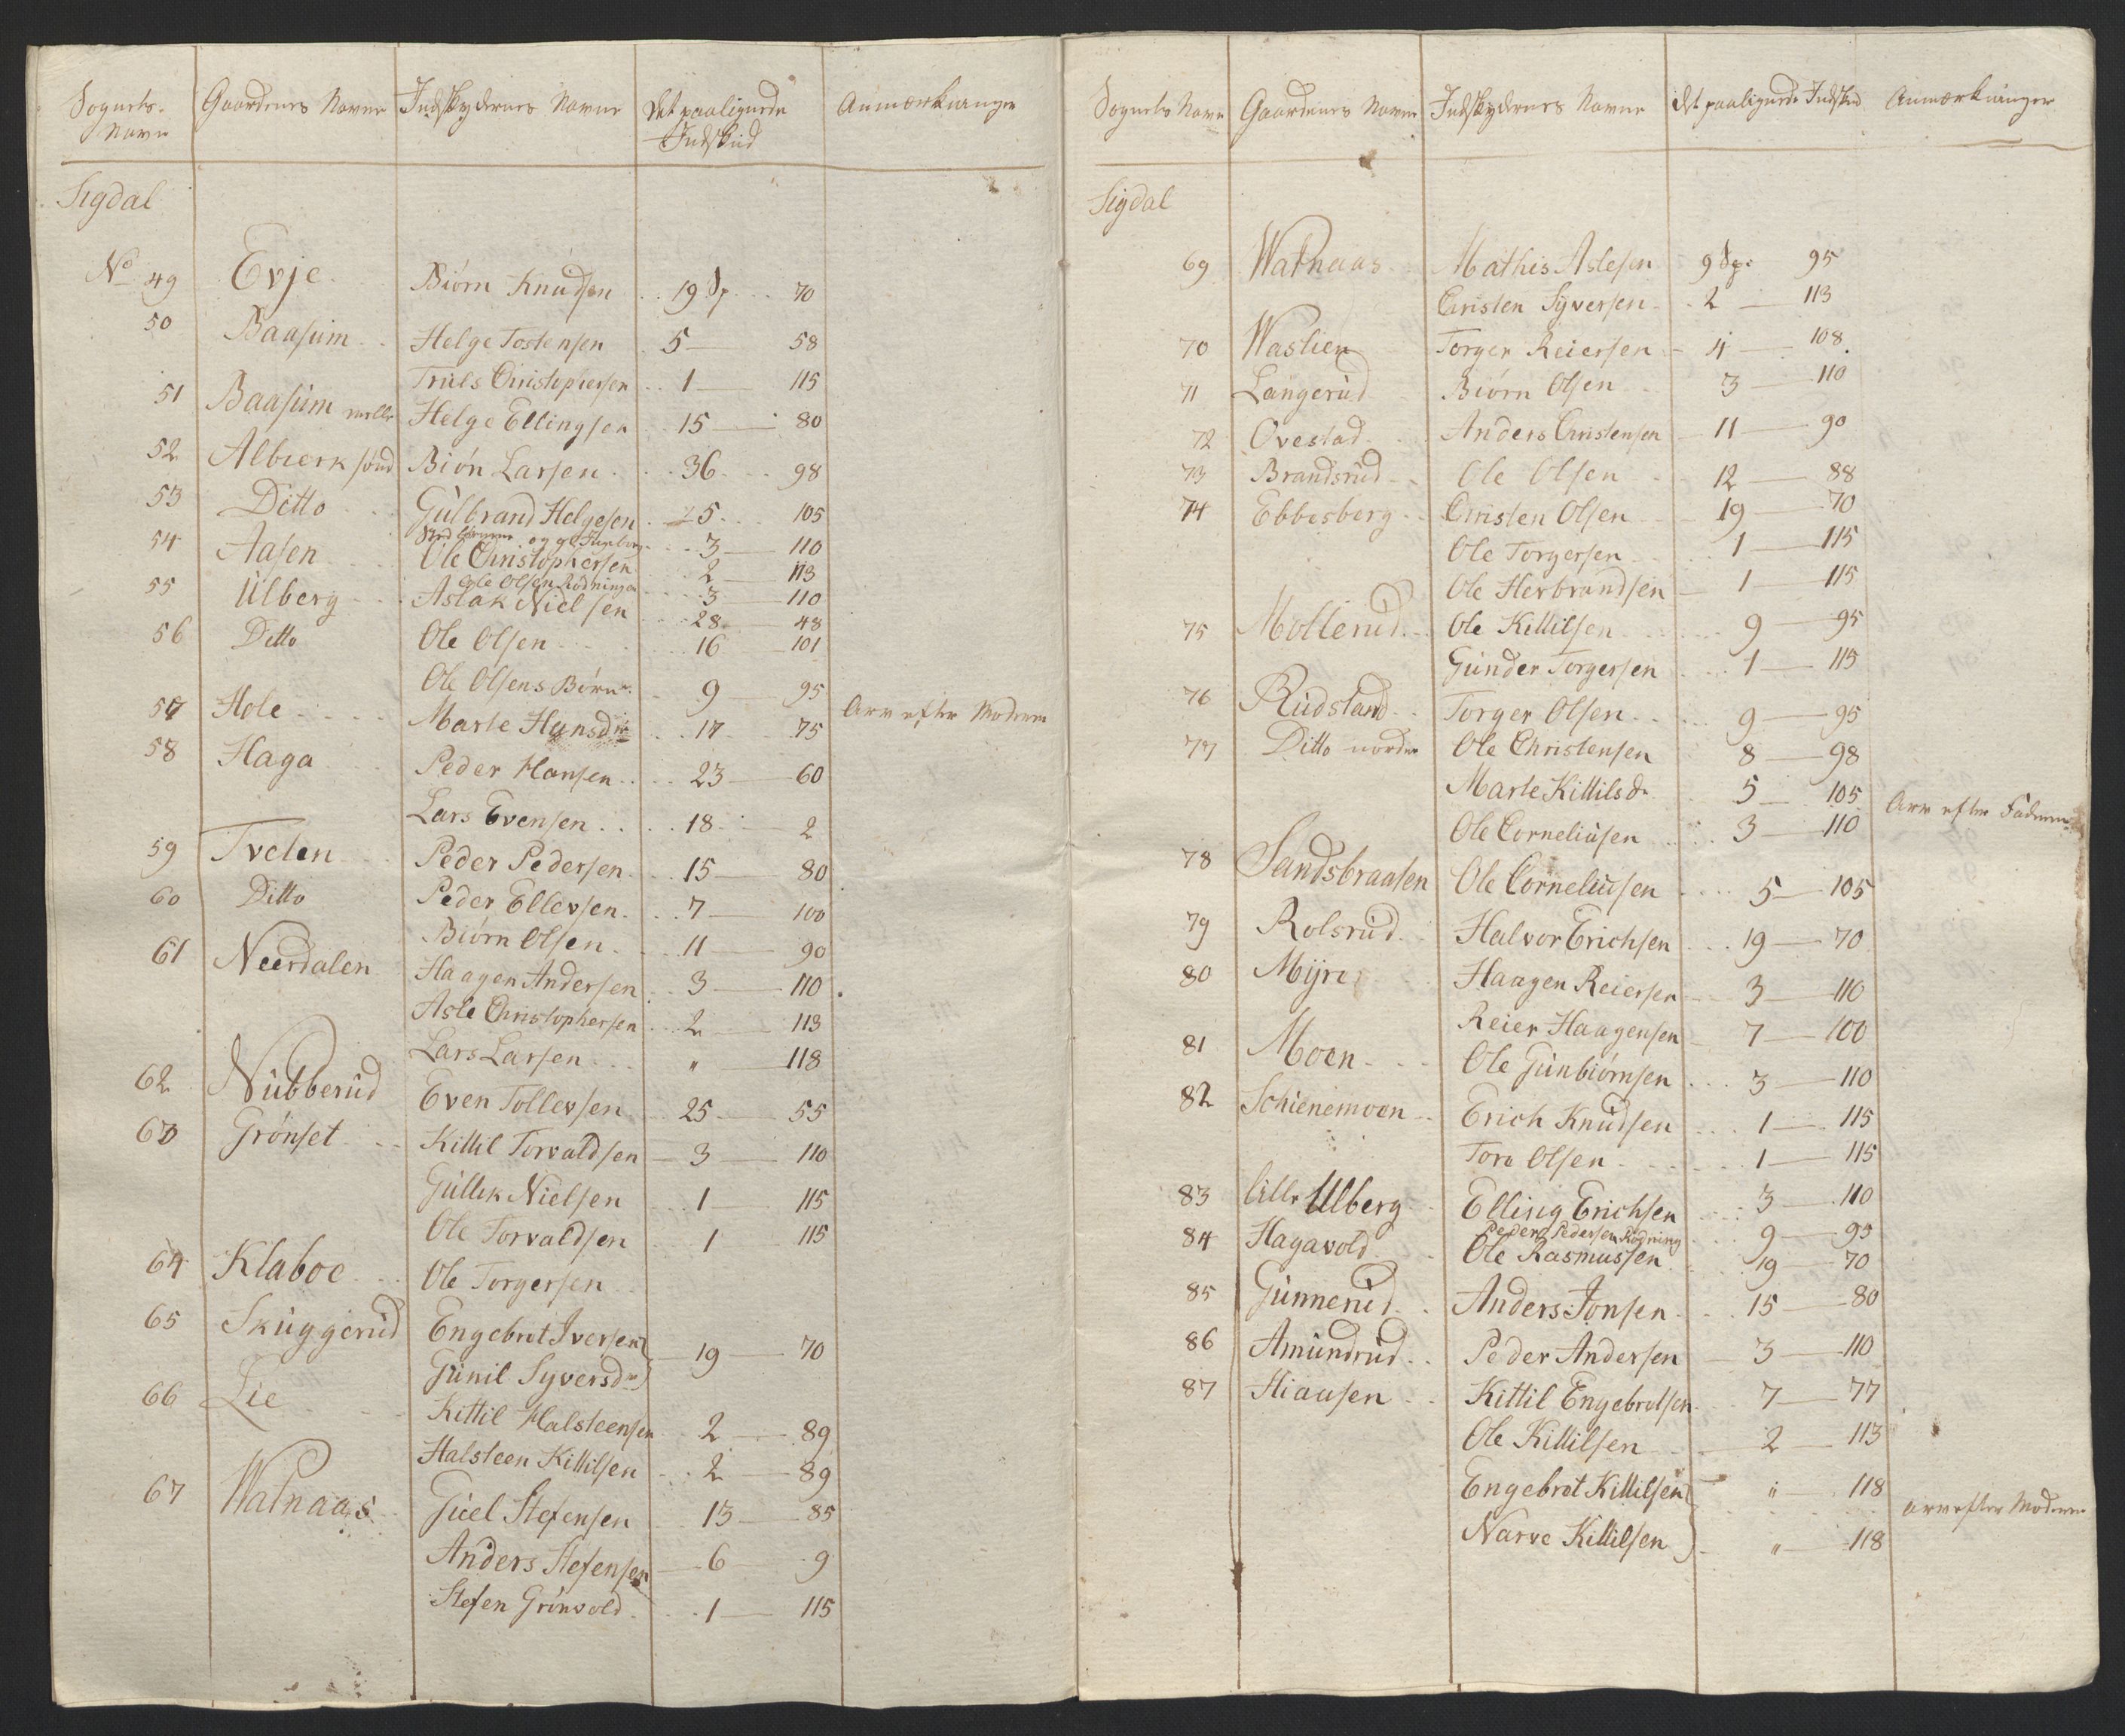 Sognets Navn | Gaardenes Navne | Indskydernes Navne | Det paalignede Indskud | Anmærkninger
Sigdal
No 49 Evje Biørn Knudsen 19 Sp 70
50 Baasum Helge Tostensen 5 58
Truls Christophersen 1 115
51 Baasum melle Helge Ellingsen 15 80
52 Albierk sønd Biørn Larsen 36 98
53 Ditto Gulbrand Helgesen 5 105
og g Ingeborg 3 110
54 Aasen Ole Christophersen 2 113
Ole Olsen Rødningen 3 110
55 Ulberg Aslak Nielsen 28 48
56 Ditto Ole Olsen 16 101
Ole Olsens Børn 9 95 Arv efter Moderen
57 Hole Marte Hansdr 17 75
58 Haga Peder Hansen 23 60
Lars Evensen 18 2
59 Tvelen Peder Pedersen 15 80
60 Ditto Peder Ellevsen 7 100
Biørn Olsen 11 90
61 Neerdalen Haagen Andersen 3 110
Asle Christophersen 2 113
Lars Larsen " 118
62 Nubberud Even Tollevsen 25 55
63 Grønset Kittil Torvaldsen 3 110
Gullik Nielsen 1 115
Ole Torvaldsen 1 115
64 Klaboe Ole Torgersen
65 Skuggerud Engebret Iversen
Gunil Syversdr 19 70
66 Lie Kittil Halsteensen 2 89
Halsteen Kittilsen 2 89
67 Watnaas Giel Stefensen 13 85
Anders Stefensen 6 9
Stefen Grønvold 1 115
Sognets Navn | Gaardenes Navne | Indskydernes Navne | Det paalignede Indskud | Anmærkninger
Sigdal
69 Watnaas Mathis Aslesen 9 Sp. 95
Christen Syversen 2 113
70 Waslien Torger Reiersen 4 108
71 Langerud Biørn Olsen 3 110
72 Ovestad Anders Christensen 11 90
73 Brandsrud Ole Olsen 12 88
74 Ebbesberg Christen Olsen 19 70
Ole Torgersen 1 115
Ole Herbrandsen 1 115
75 Mollerud Ole Kittilsen 9 95
Gunder Torgersen 1 115
76 Rudsland Torger Olsen 9 95
77 Ditto nordre Ole Christensen 8 98
Marte Kittilsdr 5 105 Arv efter Faderen
Ole Corneliusen 3 110
78 Sandsbraaten Ole Corneliusen 5 105
79 Rolsrud Halvor Erichsen 19 70
80 Myre Haagen Reiersen 3 110
Reier Haagensen 7 100
81 Moen Ole Gunbiørnsen 3 110
82 Schienemoen Erich Knudsen 1 115
Tore Olsen 1 115
83 lille Ulberg Elling Erichsen 3 110
Peder Pedersen Rødning 9 95
84 Hagavold Ole Rasmussen 19 70
85 Gunnerud Anders Jonsen 15 80
86 Amundrud Peder Andersen 3 110
87 Hiaasen Kittil Engebretsen 7 77
Ole Kittilsen 2 113
Engebret Kittilsen " 118
Narve Kittilsen " 118 arv efter Moderen